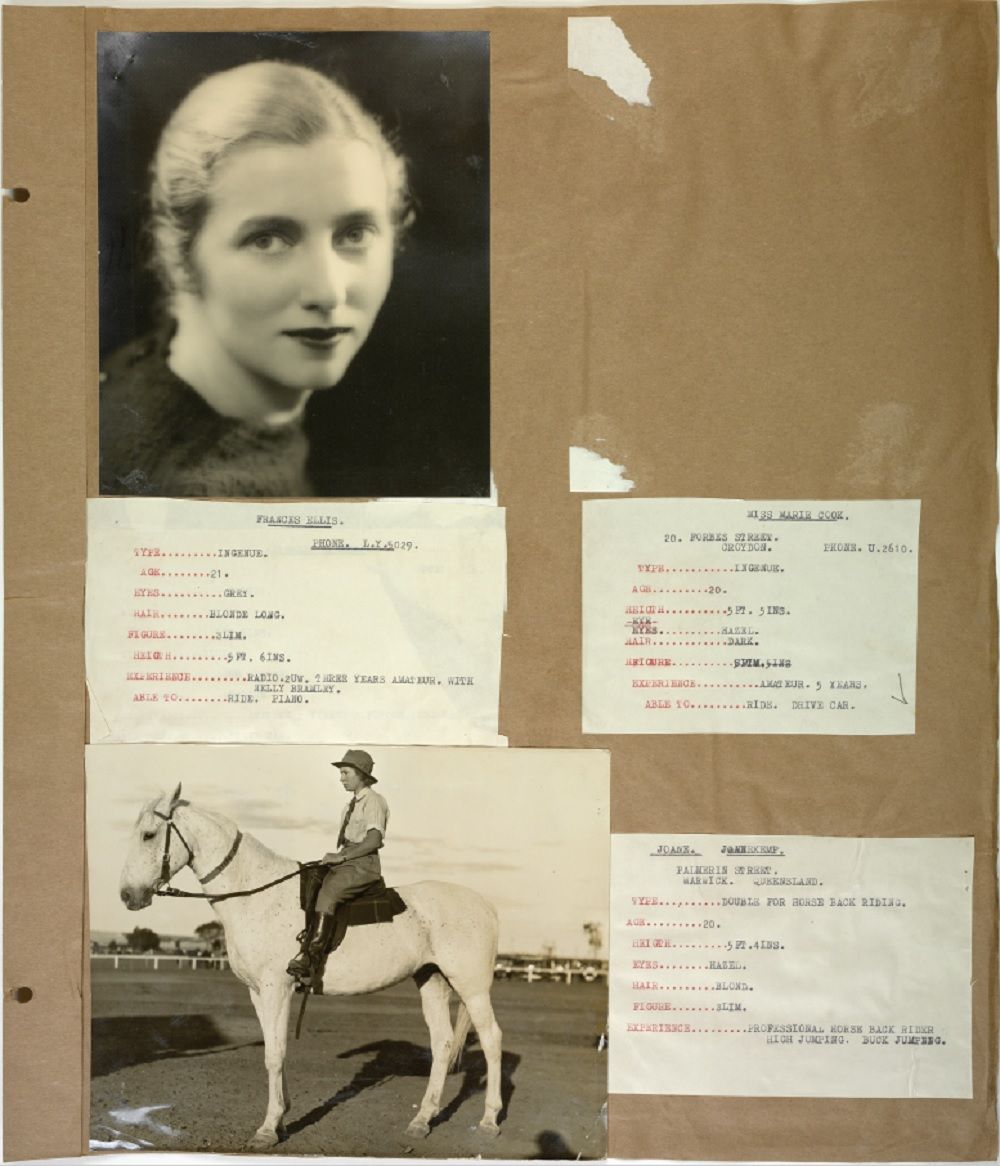 FRANCES ELLIS.
PHONE. L.Y.5029.
TYPE.........INGENUE.
AGE........21.
EYES..........GREY.
HAIR........BLONDE LONG.
FIGURE........SLIM.
HEIGTH.........5 FT. 6INS.
EXPERIENCE.........RADIO.2UW. THREE YEARS AMATEUR. WITH
NELLY BRAMLEY.
ABLE TO........RIDE. PIANO.
MISS MARIE COOK.
20. FORBES STREET.
CROYDON. PHONE. U.2610.
TYPE...........INGENUE.
AGE.........20.
HEIGTH..........5 FT. 5 INS.
EYE
EYES..........HAZEL.
HAIR........DARK.
FIGURE..........SLIM.
EXPERIENCE..........AMATEUR. 5 YEARS.
ABLE TO.........RIDE. DRIVE CAR.
PALMERIN STREET.
WARWICK. QUEENSLAND.
TYPE..........DOUBLE FOR HORSE BACK RIDING.
AGE.........20.
HEIGTH.........5 FT.4INS.
EYES........HAZEL.
HAIR.........BLOND.
FIGURE.......SLIM.
EXPERIENCE.........PROFESSIONAL HORSE BACK RIDER
HIGH JUMPING. BUCK JUMPING.